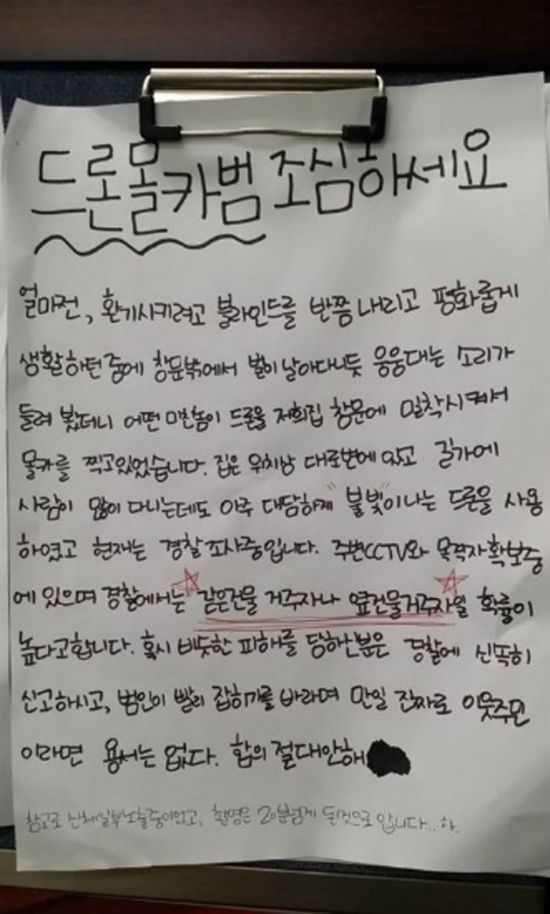 드론몰카범조심하세요
얼마전, 환기시키려고 블라인드를 반쯤 내리고 평화롭게
생활하던중에 창문밖에서 벌이 날아다니듯 응웅대는 소리가
들려 봤더니 어떤 미친놈이 드론을 저희집 창문에 밀착시켜서
몰카를 찍고있었습니다. 집은 위치상 대로변에 있고 길가에
사람이 많이 다니는데도 아주 대담하게 "불빛"이나는 드론을 사용
하였고 현재는 경찰조사중입니다. 주변CCTV와 목격자확보중
에 있으며 경찰에서는 같은건물 거주자나 옆건물거주자일 확률이
높다고합니다. 혹시 비슷한 피해를 당하신분은 경찰에 신속히
신고하시고, 범인이 빨리 잡히기를 바라며 만일 진짜로 이웃주민
이라면 용서는 없다. 합의 절대안해
참고로 신체일부노출중이었고, 촬영은 20분넘게 된것으로 압니다... 하..